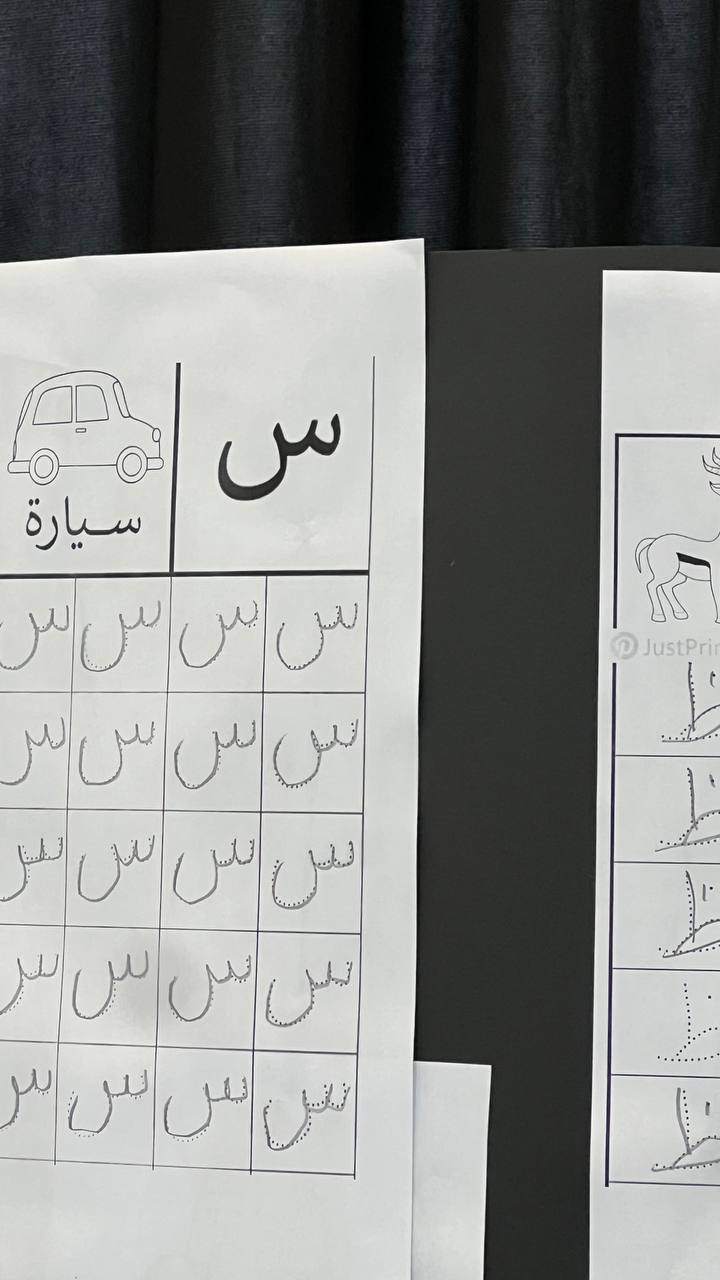 س
سيارة
س س س س
س س س س
س س س س
س س س س
س س س س
JustPrin